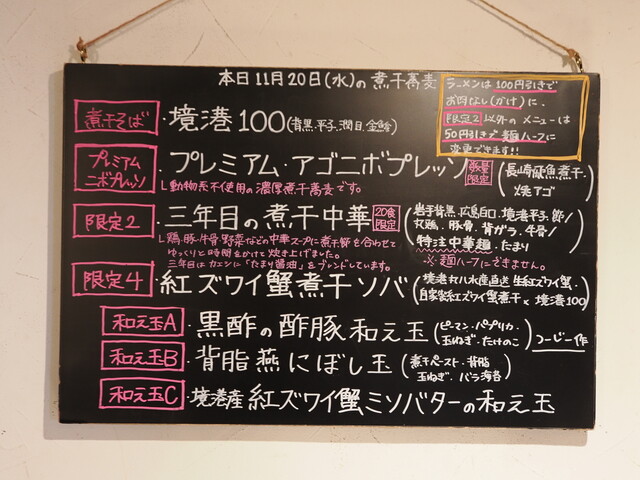 本日11月20日(水)の煮干蕎麦
ラーメンは100円引きで
お肉なし(かけ)に、
限定2以外のメニューは
50円引きで麺ハーフに
変更できます!!
煮干そば・境港100(背黒・平子・潤目・金鯵)
プレミアムニボプレッソ
プレミアム・アゴニボプレッソ 数量限定 (長崎 魚煮干・焼アゴ)
L動物系不使用の濃厚煮干蕎麦です。
限定2・三年目の煮干中華 20食限定
(岩手背黒・広島白口・境港平子・節/
丸鶏・豚骨・背ガラ・牛骨/
特注中華麺・たまり)
L鶏・豚・牛骨・野菜などの中華スープに煮干節を合わせて
ゆっくりと時間をかけて炊き上げました。
三年目はカエシに「たまり醤油」をブレンドしています。
※麺ハーフにできません。
限定4・紅ズワイ蟹煮干ソバ
(境港丸八水産直送 生紅ズワイ蟹・
自家製紅ズワイ蟹煮干×境港100)
和え玉A・黒酢の酢豚和え玉(ピーマン・パプリカ・玉ねぎ・たけのこ)つーじー作
和え玉B・背脂燕にぼし玉(煮干ペースト・背脂・玉ねぎ・バラ海苔)
和え玉C・境港産紅ズワイ蟹ミソバターの和え玉